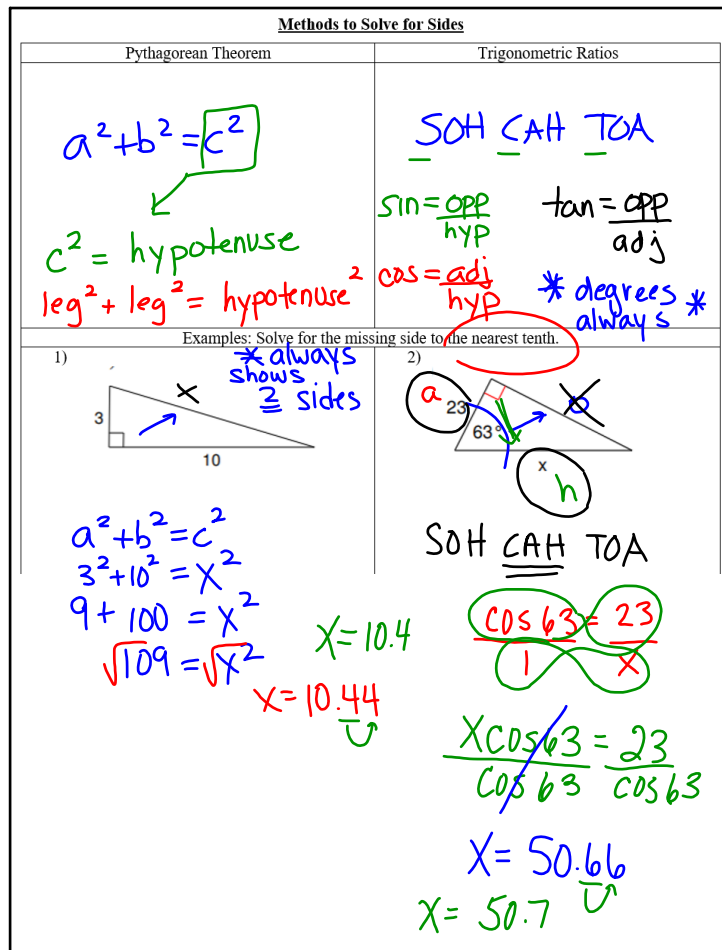 Methods to Solve for Sides
Pythagorean Theorem
a²+b²=c²
c² = hypotenuse
leg² + leg² = hypotenuse²
Trigonometric Ratios
SOH CAH TOA
sin = opp/hyp
tan = opp/adj
cos = adj/hyp
* degrees *
always
Examples: Solve for the missing side to the nearest tenth.
1)
* always
shows
2 sides
x
3
10
a²+b²=c²
3²+10²=x²
9+100=x²
√109=√x²
x=10.44
x=10.4
2)
a
23
63°
o
x
h
SOH CAH TOA
cos 63/1 = 23/x
xcos63/cos63 = 23/cos63
x=50.66
x=50.7